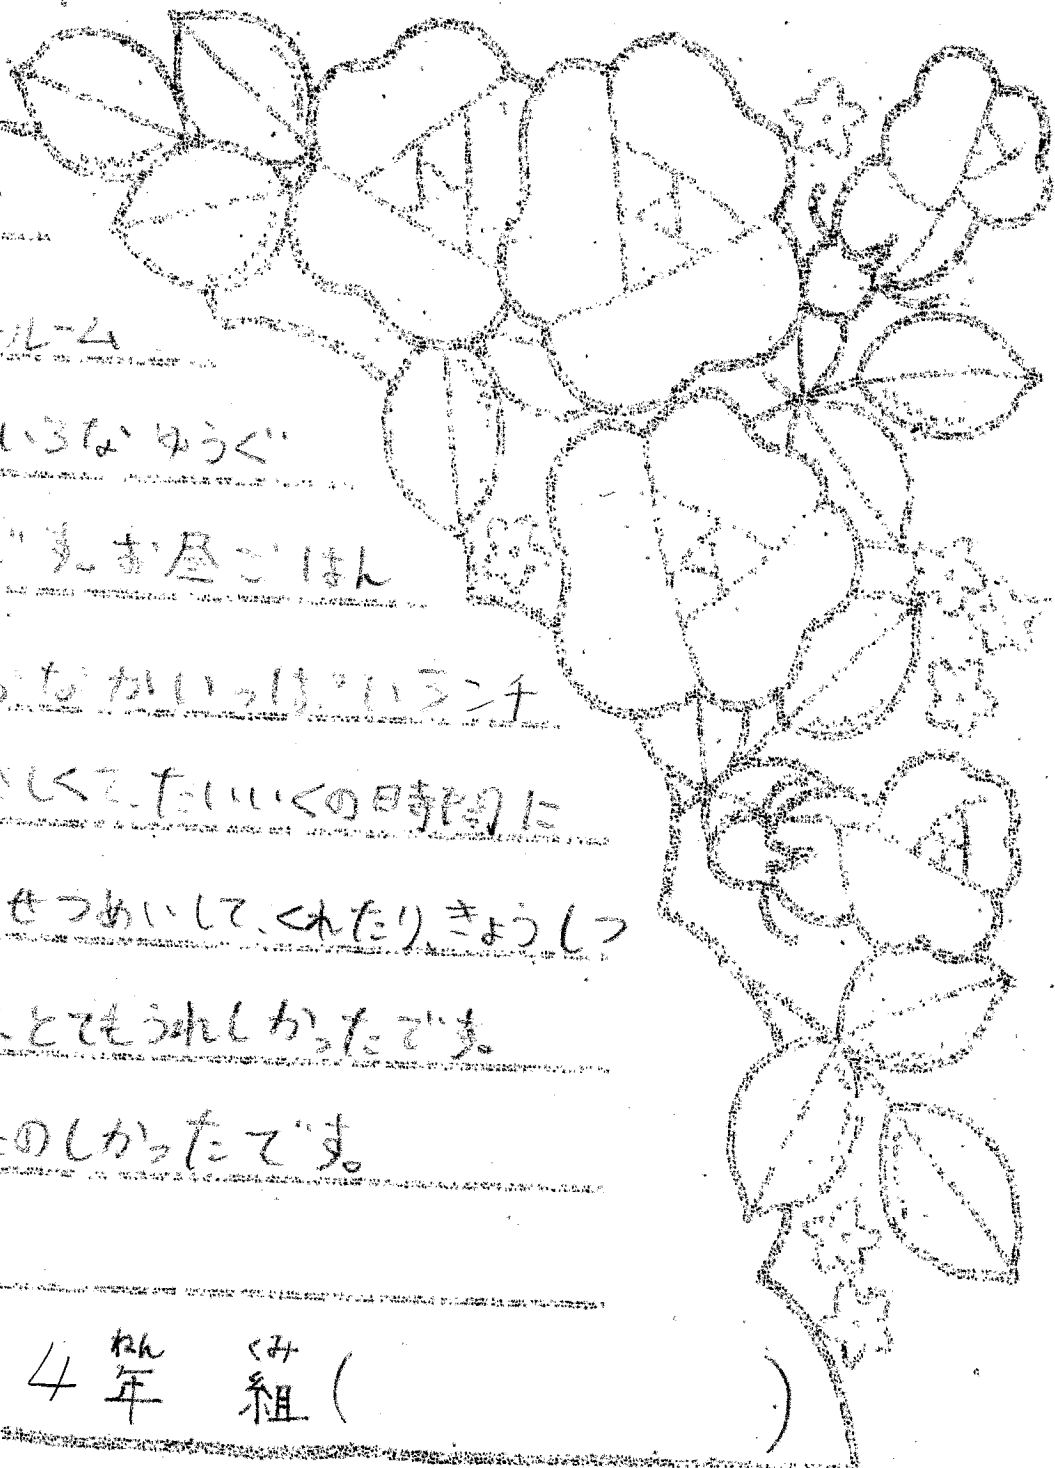 ルーム
いろなゆうぐ
す。お昼ごはん
なかいっぱいランチ
しくて、たいいくの時間に
せつめいして、くれたり、きょうしつ
、とてもうれしかったです。
のしかったです。
ねん くみ
4年 組( )